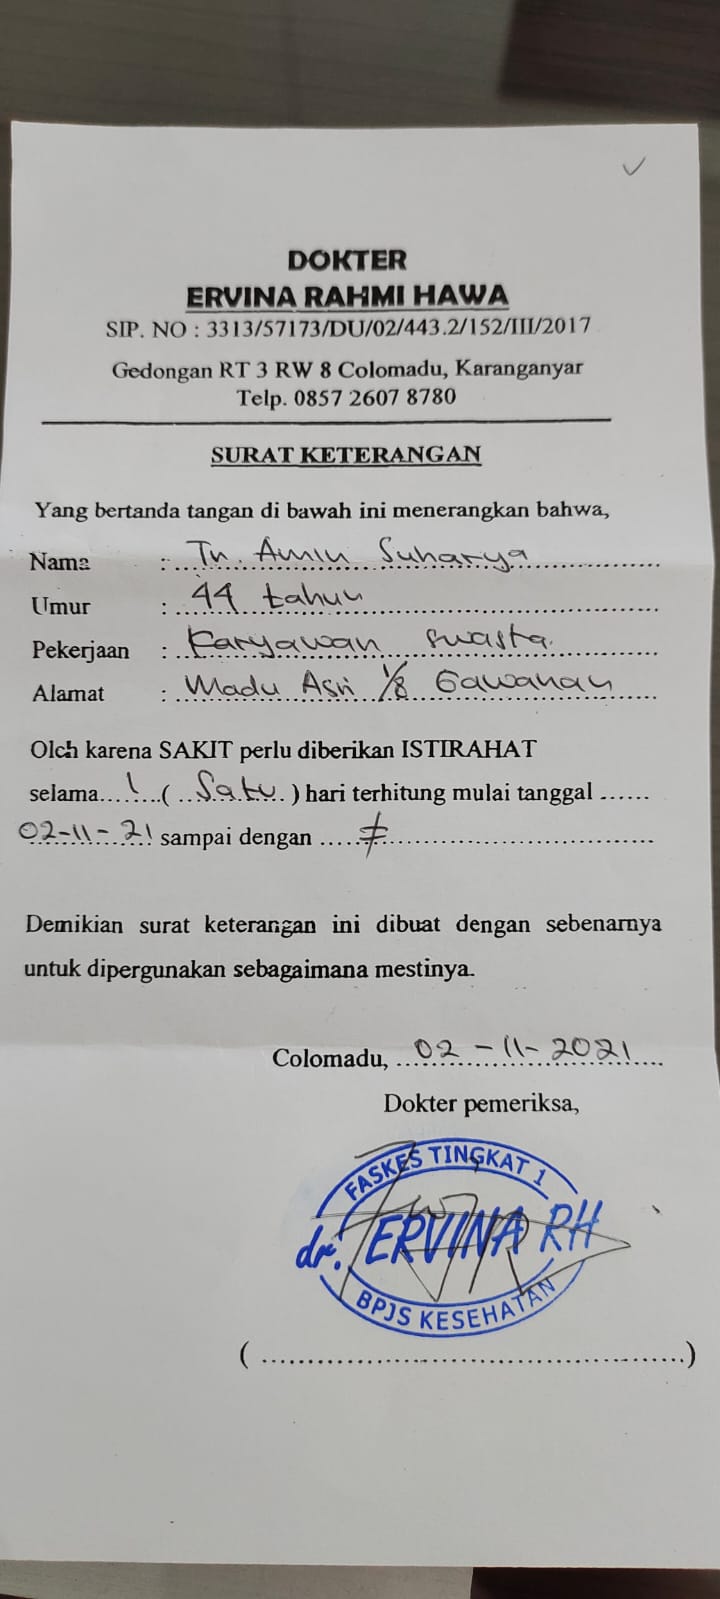 DOKTER
ERVINA RAHMI HAWA
SIP. NO : 3313/57173/DU/02/443.2/152/III/2017
Gedongan RT 3 RW 8 Colomadu, Karanganyar
Telp. 0857 2607 8780
SURAT KETERANGAN
Yang bertanda tangan di bawah ini menerangkan bahwa,
Nama : Tn. Amin Suharya
Umur : 44 tahun
Pekerjaan : Karyawan swasta.
Alamat : Madu Asri 1/8 Gawanan
Oleh karena SAKIT perlu diberikan ISTIRAHAT
selama 1 ( Satu ) hari terhitung mulai tanggal
02-11-21 sampai dengan
Demikian surat keterangan ini dibuat dengan sebenarnya
untuk dipergunakan sebagaimana mestinya.
Colomadu, 02-11-2021
Dokter pemeriksa,
FASKES TINGKAT 1
dr. ERVINA RH
BPJS KESEHATAN
(....................)